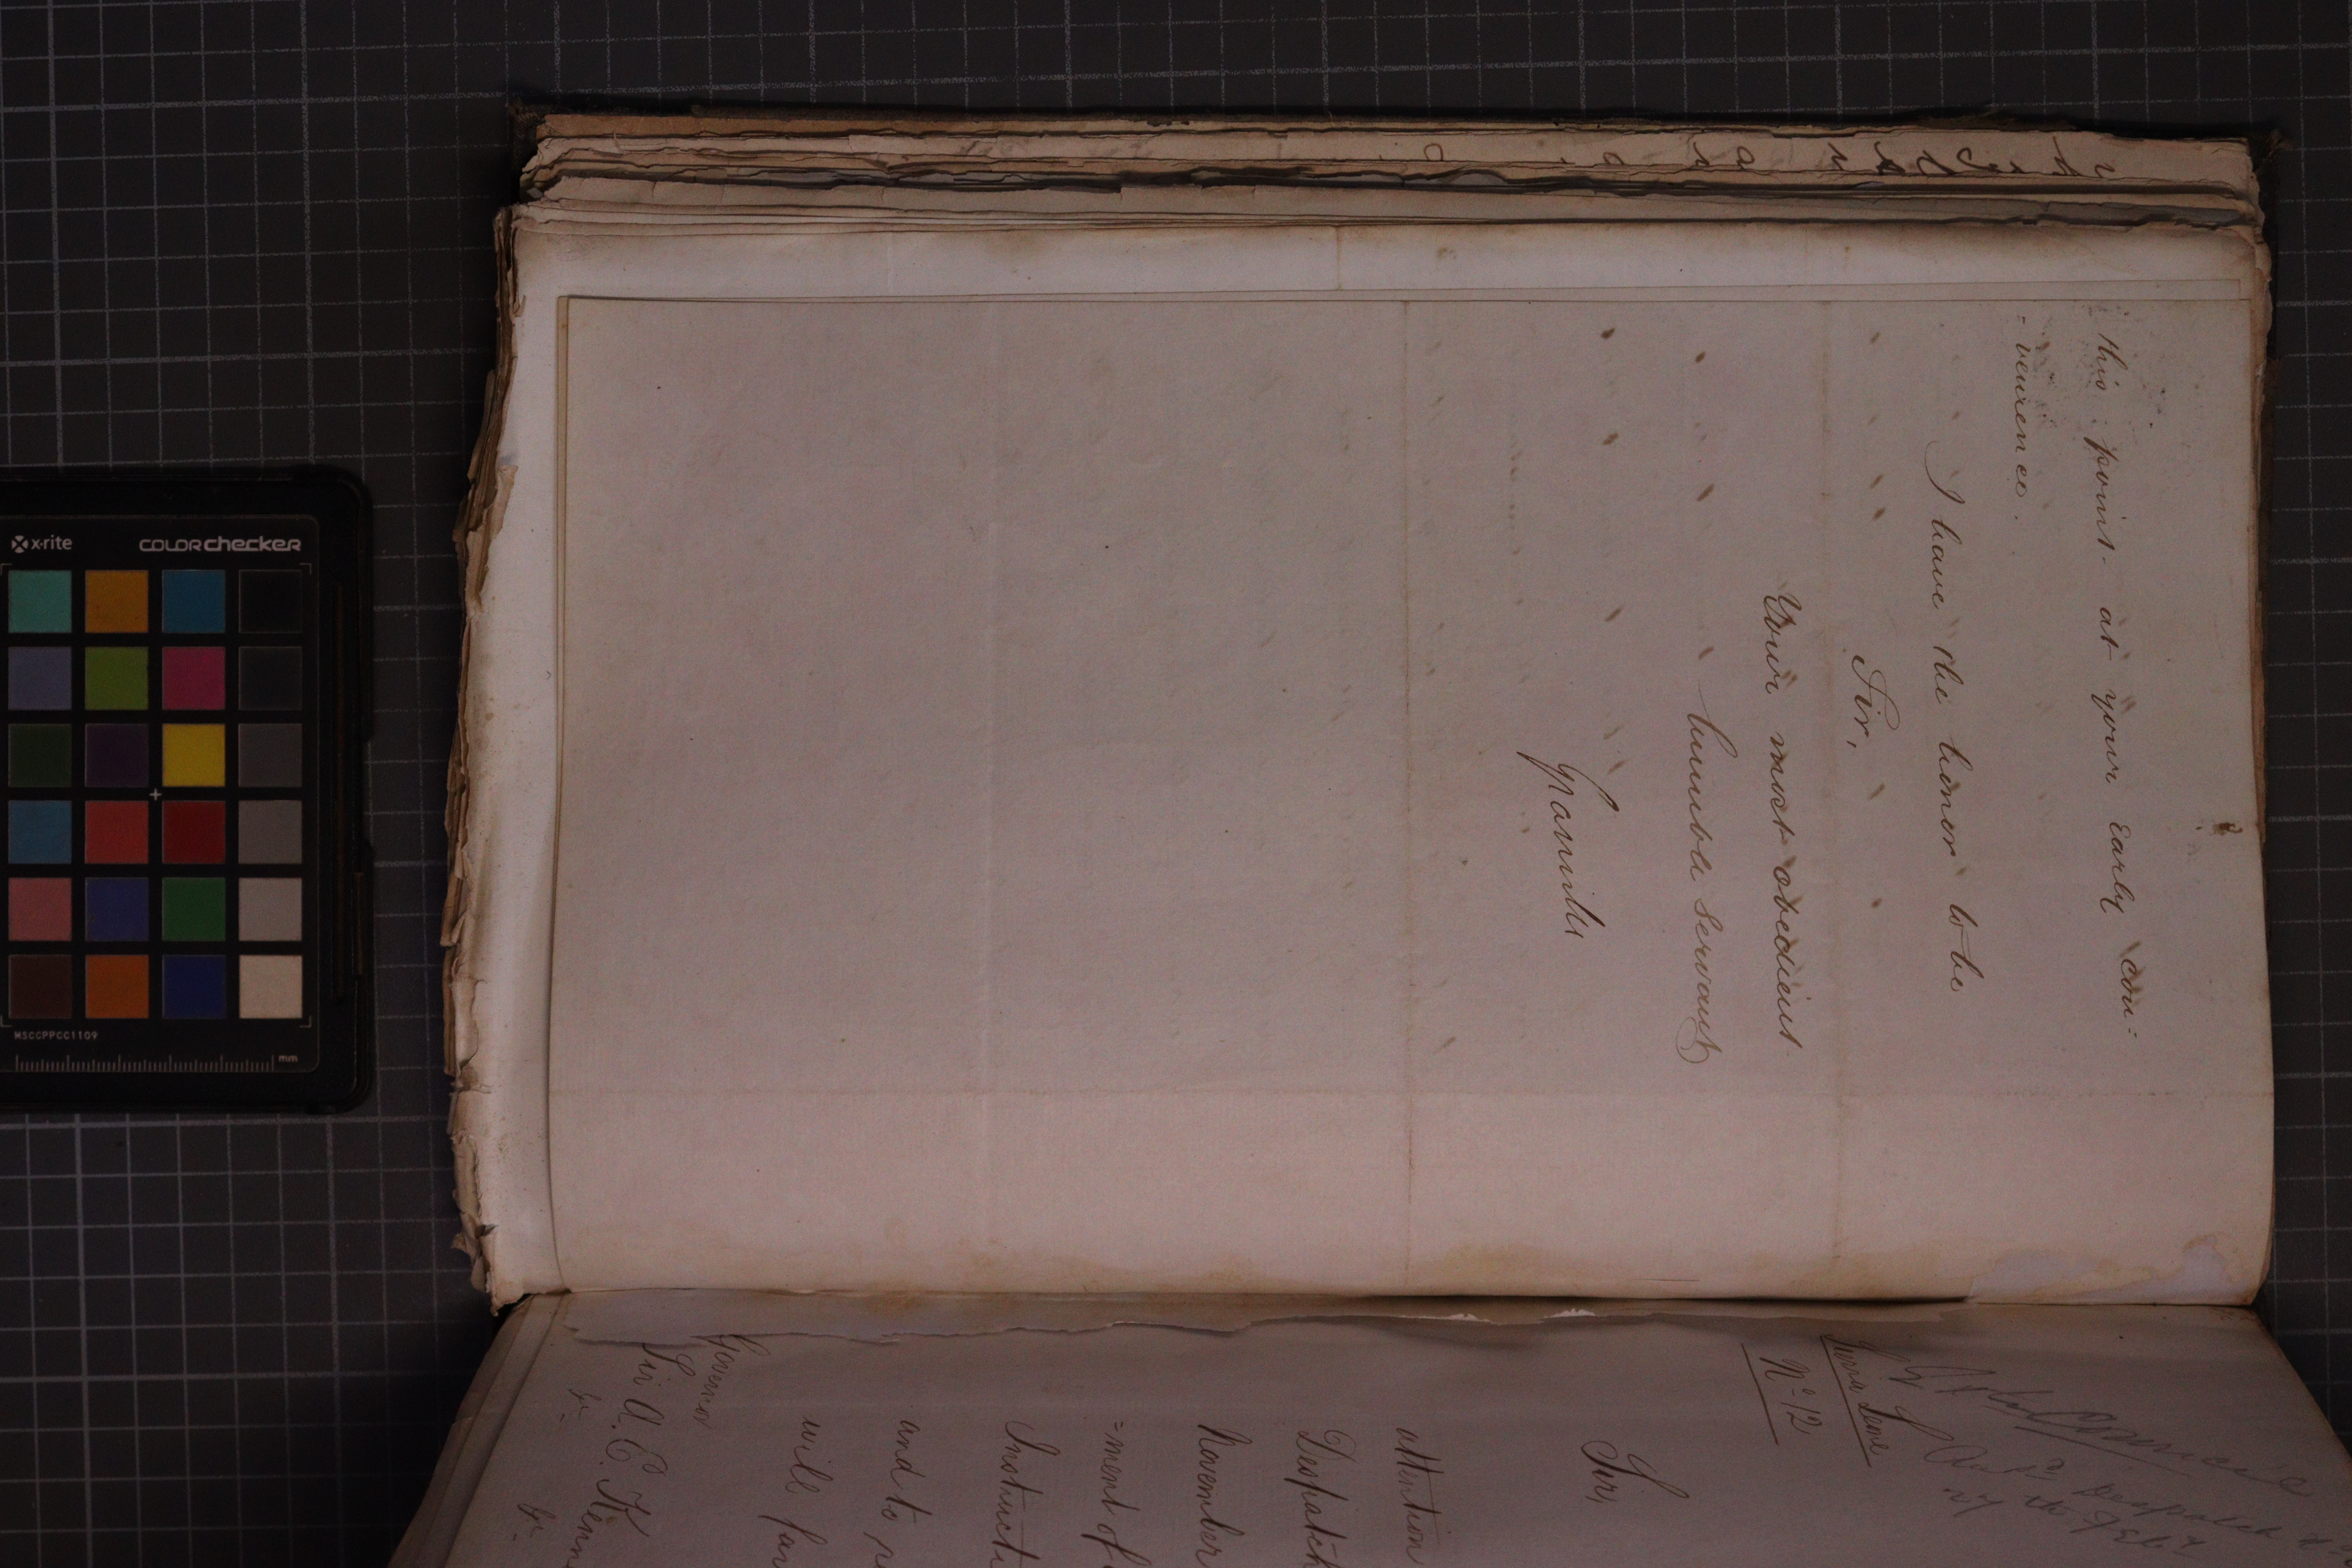 this point at your early con-
-venience.
I have the honor to be
Sir,
Your most obedient
humble servant
Granville
Sierra Leone
No. 12
Sir,
attention
Despatch
November
=ment of
Instructi
and to
will
Governor
Sir A. E. Kenn
&c. &c.
x-rite
COLORchecker
MSCCPPCC1109
mm